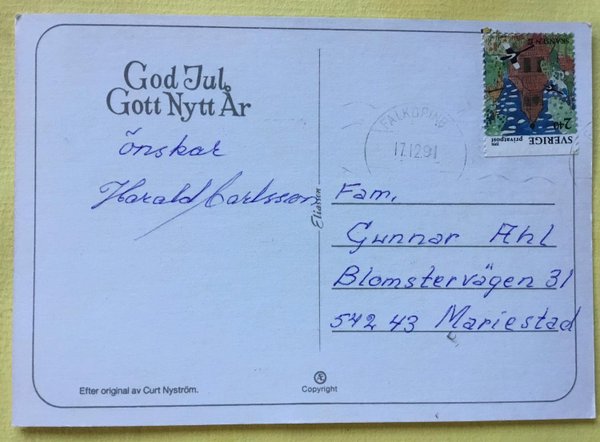 God Jul
Gott Nytt År
önskar
Harald Carlsson
Eliasson
Efter original av Curt Nyström.
Copyright
FALKÖPING
17.12.91
SVERIGE
privatpost
SKANSEN
Fam.
Gunnar Ahl
Blomstervägen 31
542 43 Mariestad